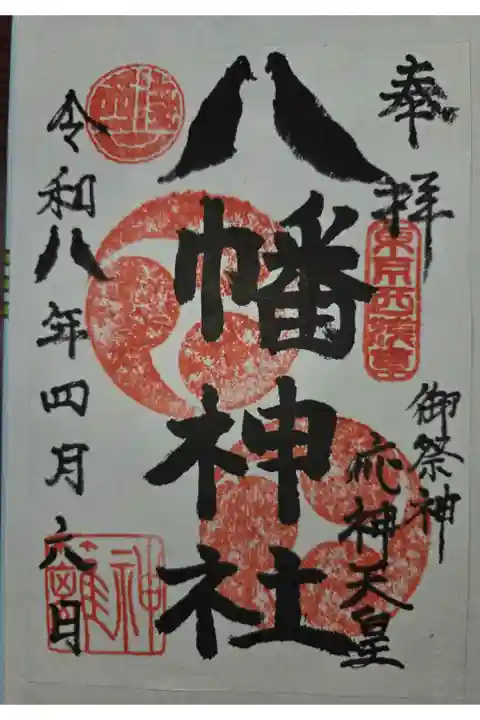 奉拝
東京西浅草
御祭神
応神天皇
八幡神社
令和八年四月六日
神籬